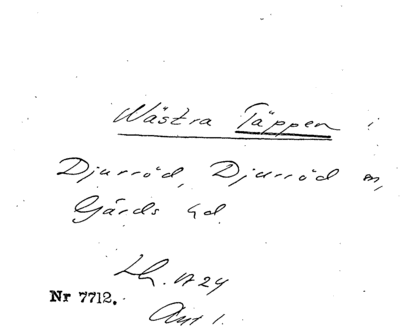 Wästra Täppen i
Djurröd, Djurröd sn,
Gärds hd.
Lh. 1724
Nr 7712.
Akt 1.